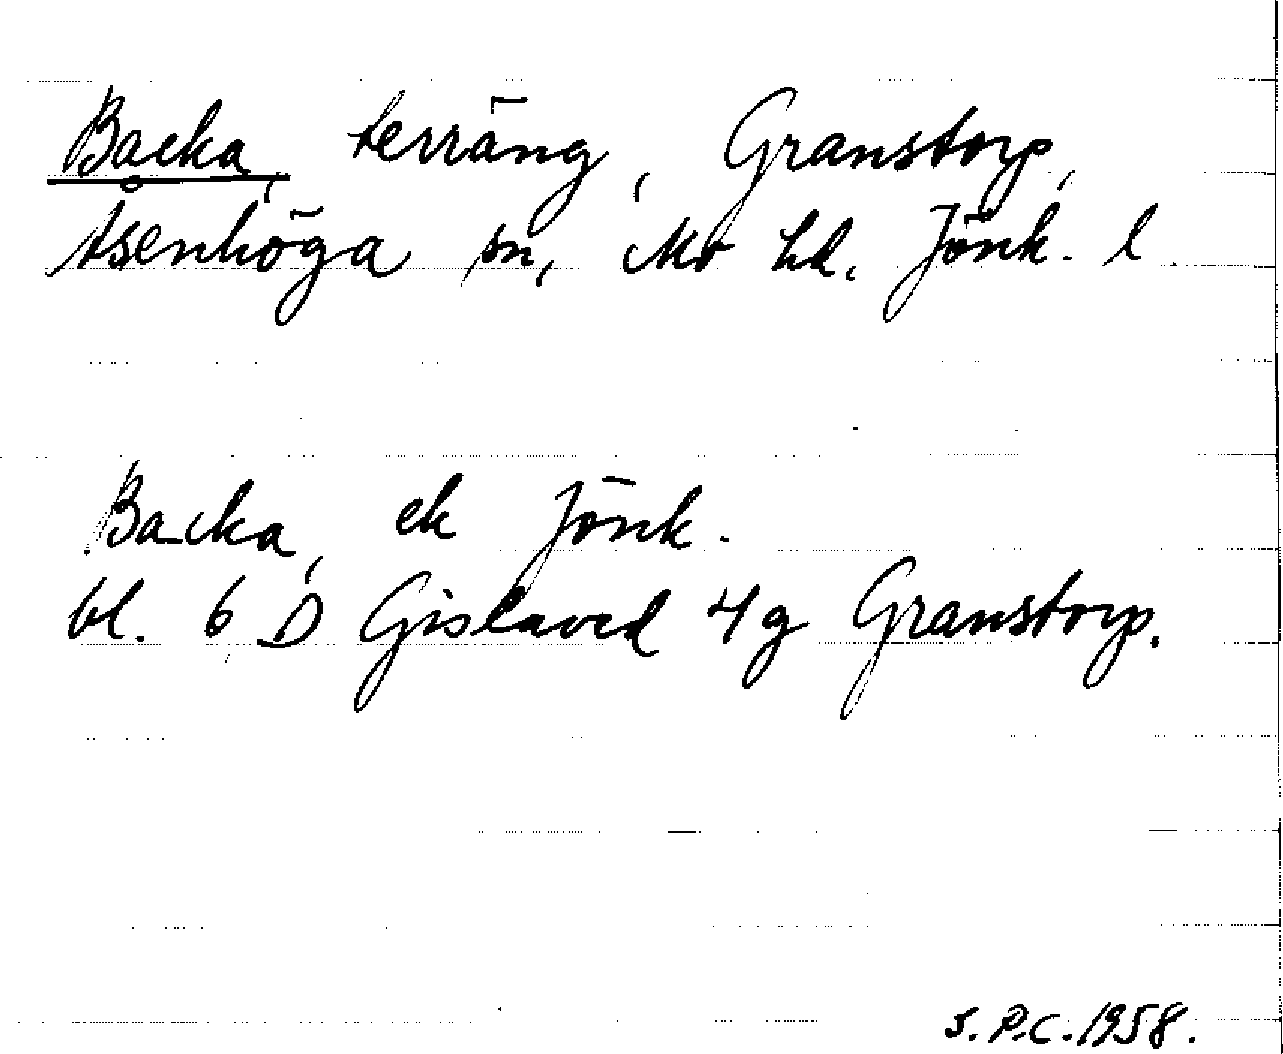 Backa, terräng, Granstorp,
Åsenhöga sn, Mo hd. Jönk. l
Backa, ek Jönk.
bl. 6 D Gislaved 4g Granstorp.
S.P.C. 1958.